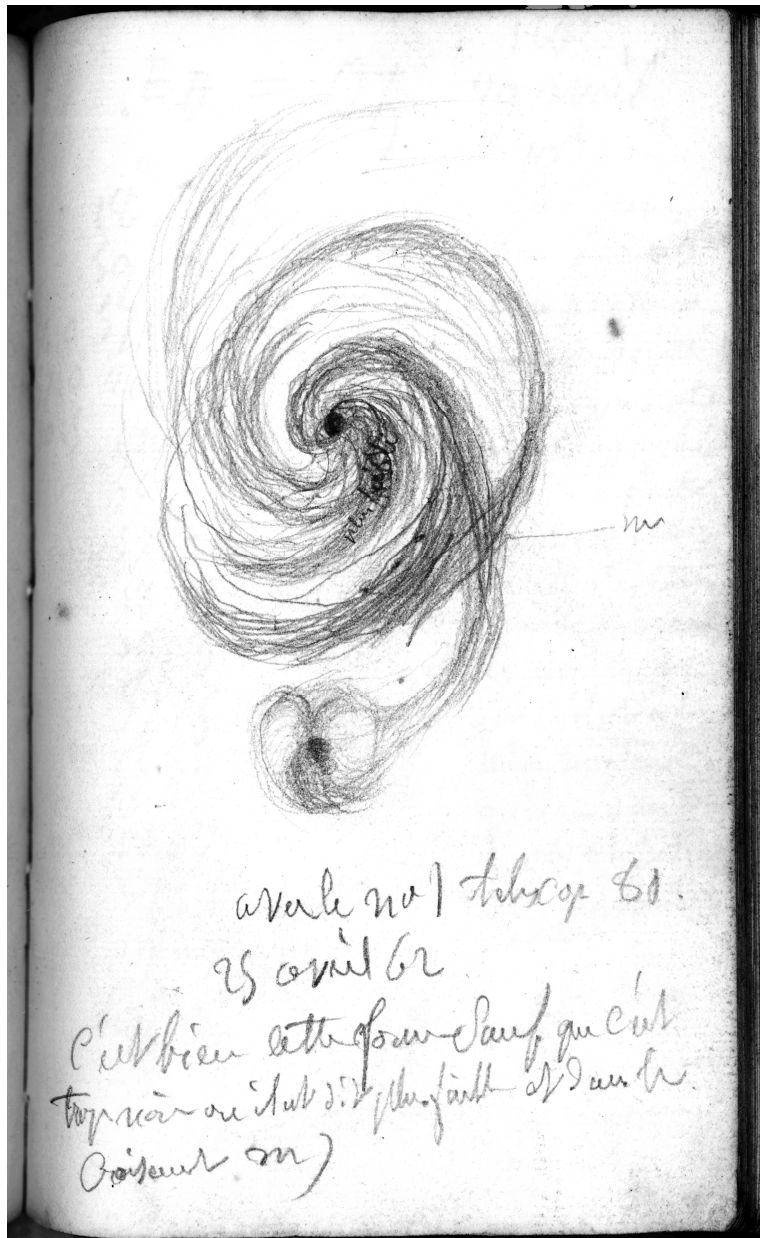 plus faible
m
avec le no 1 telescop 80.
25 avril 62
c'est bien cette forme Sauf que c'est
trop noir ou il est dit plus faible et dans le
croisement m)